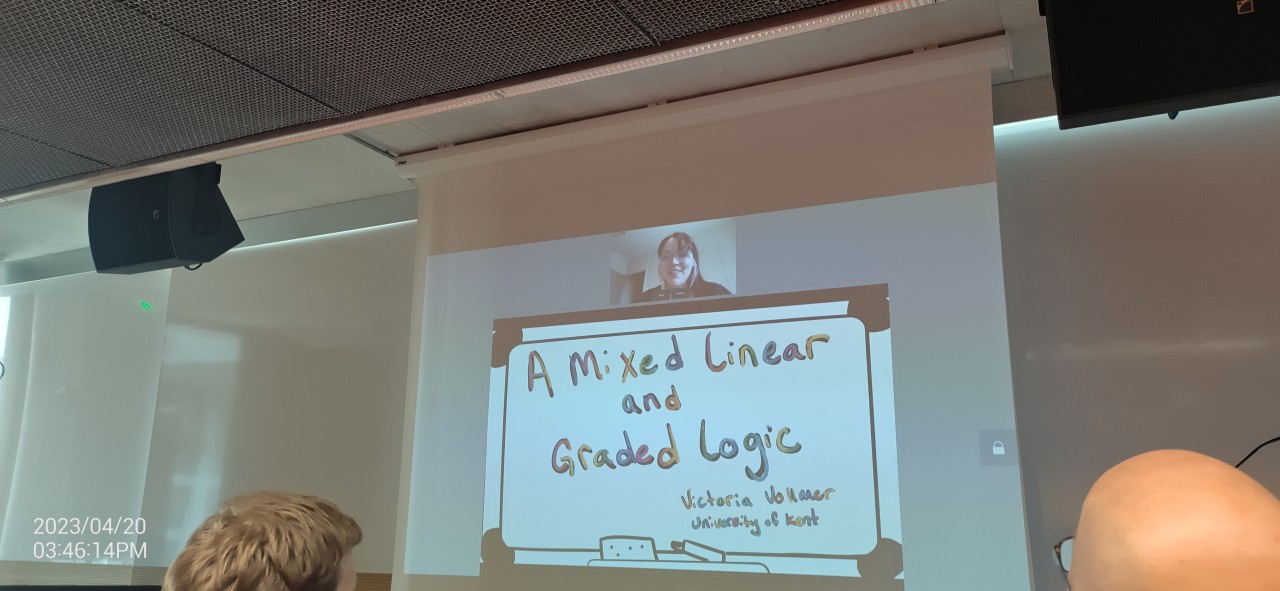 A Mixed Linear
and
Graded Logic
Victoria Vollmer
University of Kent
2023/04/20
03:46:14PM